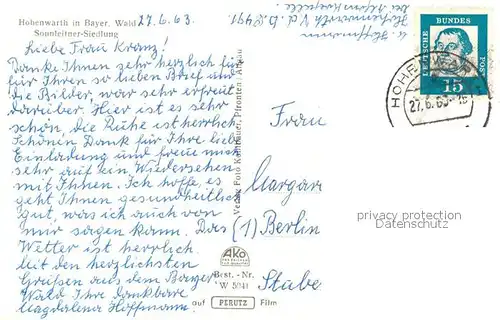 Hohenwarth in Bayer. Wald
Sonnleitner-Siedlung
27.6.63.
Liebe Frau Kranz!
Danke Ihnen sehr herzlich für
für Ihren so lieben Brief und
die Bilder, war sehr erfreut
darüber. Hier ist es sehr
schön, die Ruhe ist herrlich.
Schönen Dank für Ihre liebe
Einladung und freue mich
sehr auf ein Wiedersehen
mit Ihnen. Ich hoffe, es
geht Ihnen gesundheitlich
gut, was ich auch von
mir sagen kann. Das
Wetter ist herrlich
Mit den herzlichsten
Grüßen aus dem Bayer.
Wald Ihre dankbare
Magdalena Hoffmann.
Verlag Foto Pfronten/Allgäu
AKO
Best.-Nr.
W 5941
auf PERUTZ Film
DEUTSCHE BUNDESPOST
15
HOHENWARTH
27.6.63
Frau
Margar
(1) Berlin
Stube
privacy protection
Datenschutz